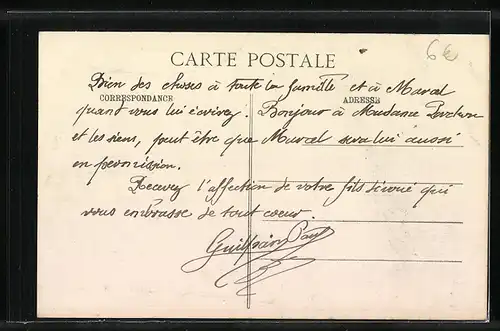 6€
CARTE POSTALE
Bien des choses à toute la famille et à Marcel
CORRESPONDANCE
ADRESSE
quand vous lui écrivez. Bonjour à Madame
et les siens, peut être que Marcel sera lui aussi
en permission.
Recevez l'affection de votre fils dévoué qui
vous embrasse de tout coeur.
Paul